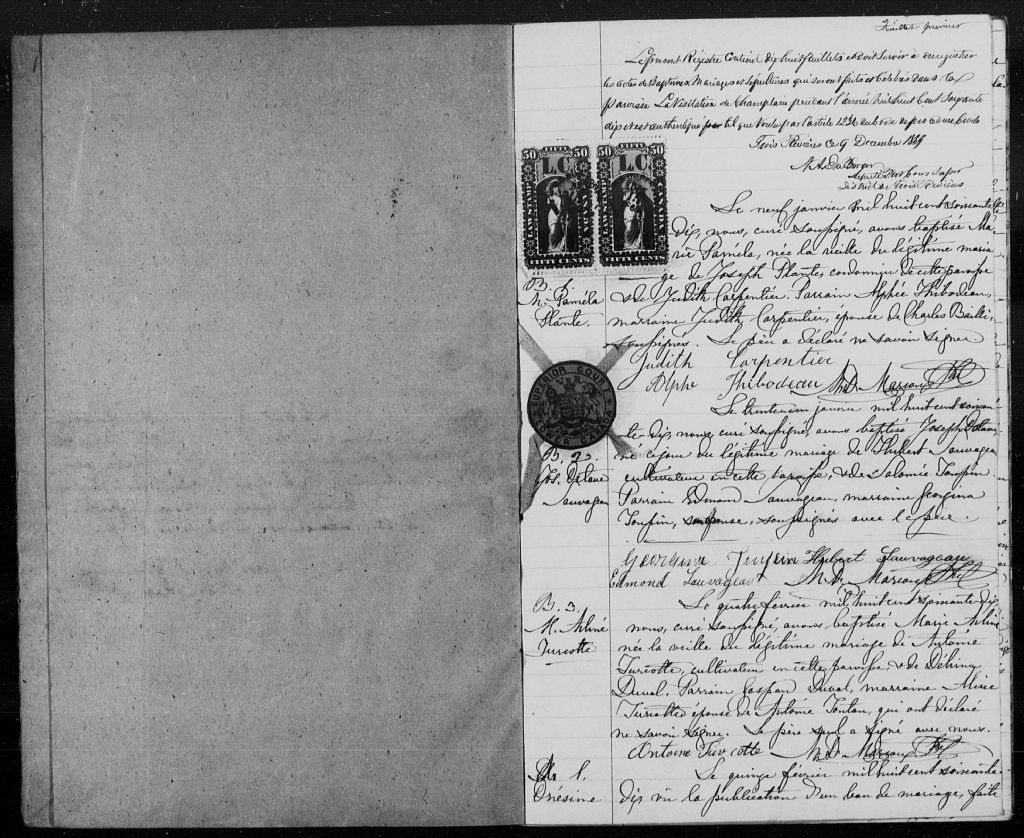 Feuillet premier
Le présent Régistre contient dix huit feuillets et doit servir à enregistrer
les actes de Baptêmes Mariages et Sépultures qui seront faits et célébrés dans la
paroisse La Visitation de Champlain pendant l'année mil huit Cent Soixante
dix et est authentiqué par tel que voulu par l'article 1236 du code de procédure Civile
Trois Rivières ce 9 Décembre 1869
District de Trois Rivières
50 FIFTY 50
L.C.
LAW STAMP
FIFTY CENTS
50 FIFTY 50
L.C.
LAW STAMP
FIFTY CENTS
Le neuf janvier mil huit cent soixante
dix, nous, curé soussigné, avons baptisé Ma-
rie Paméla, née la veille du légitime maria-
ge de Joseph Plante, cordonnier de cette paroisse
B. 1.
M. Paméla
Plante.
& de Judith Carpentier. Parrain Alphée Thibodeau,
marraine Judith Carpentier, épouse de Charles Bailli,
soussignés. Le père a déclaré ne savoir signer
Judith Carpentier
Alphe Thibodeau M. D. Marcoux Ptre
SUPERIOR COURT
V R
LOWER CANADA
Le trente un janvier mil huit cent soixan-
te-dix, nous, curé soussigné, avons baptisé Joseph Octave
né ce jour du légitime mariage de Hubert Sauvageau
B. 2.
Jos. Octave
Sauvageau
cultivateur en cette paroisse, & de Salomée Toupin.
Parrain Edmond Sauvageau, marraine Georgina
Toupin, soussignés avec le père.
Georgina Toupin Hubert Sauvageau
Edmond Sauvageau M. D. Marcoux Ptre
B. 3.
M. Arline
Turcotte
Le quatre février mil huit cent soixante-dix
nous, curé soussigné, avons baptisé Marie Arline
née la veille du légitime mariage de Antoine
Turcotte, cultivateur en cette paroisse, & de Délima
Duval. Parrain Gaspar Duval, marraine
Turcotte épouse de Antoine Tontan, qui ont déclaré
ne savoir signer. Le père seul a signé avec nous.
Antoine Turcotte M. D. Marcoux Ptre
M. 1.
Onésime
Le quinze février mil huit cent soixante-
dix vu la publication d'un ban de mariage, faite